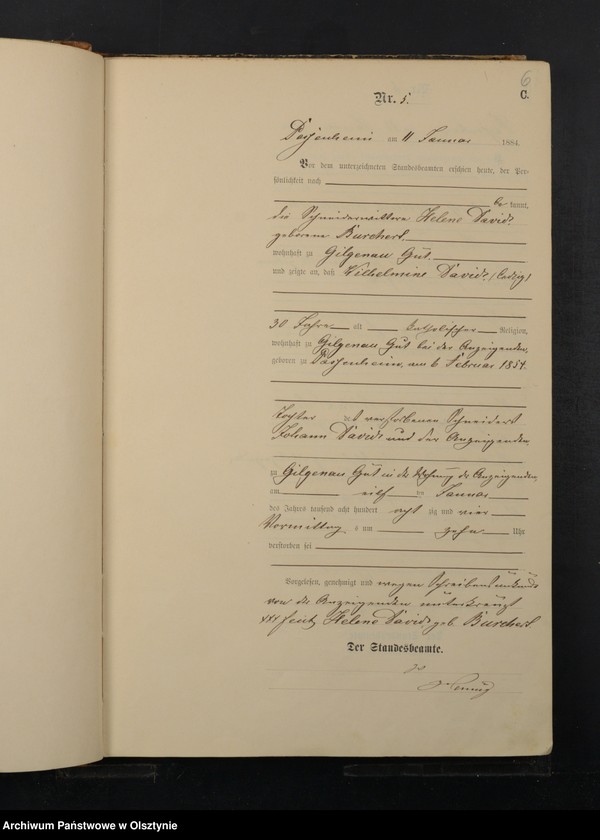 6
C.
Nr. 5.
Passenheim am 11 Januar 1884.
Vor dem unterzeichneten Standesbeamten erschien heute, der Per-
sönlichkeit nach
be kannt,
die Schneiderwittwe Helene Davids
geborene Burchert
wohnhaft zu Gilgenau Gut
und zeigte an, daß Wilhelmine Davids, ledig
30 Jahre alt katholischer Religion,
wohnhaft zu Gilgenau Gut bei der Anzeigenden,
geboren zu Passenheim, am 6 Februar 1854.
Tochter des verstorbenen Schneiders
Johann Davids und der Anzeigenden
zu Gilgenau Gut in der Wohnung der Anzeigenden,
am eilf ten Januar
des Jahres tausend acht hundert acht zig und vier
Vormittag s um zehn Uhr
verstorben sei
Vorgelesen, genehmigt und wegen Schreibensunkunde
von der Anzeigenden unterkreuzt
xxx Helene Davids geb. Burchert
Der Standesbeamte.
Archiwum Państwowe w Olsztynie